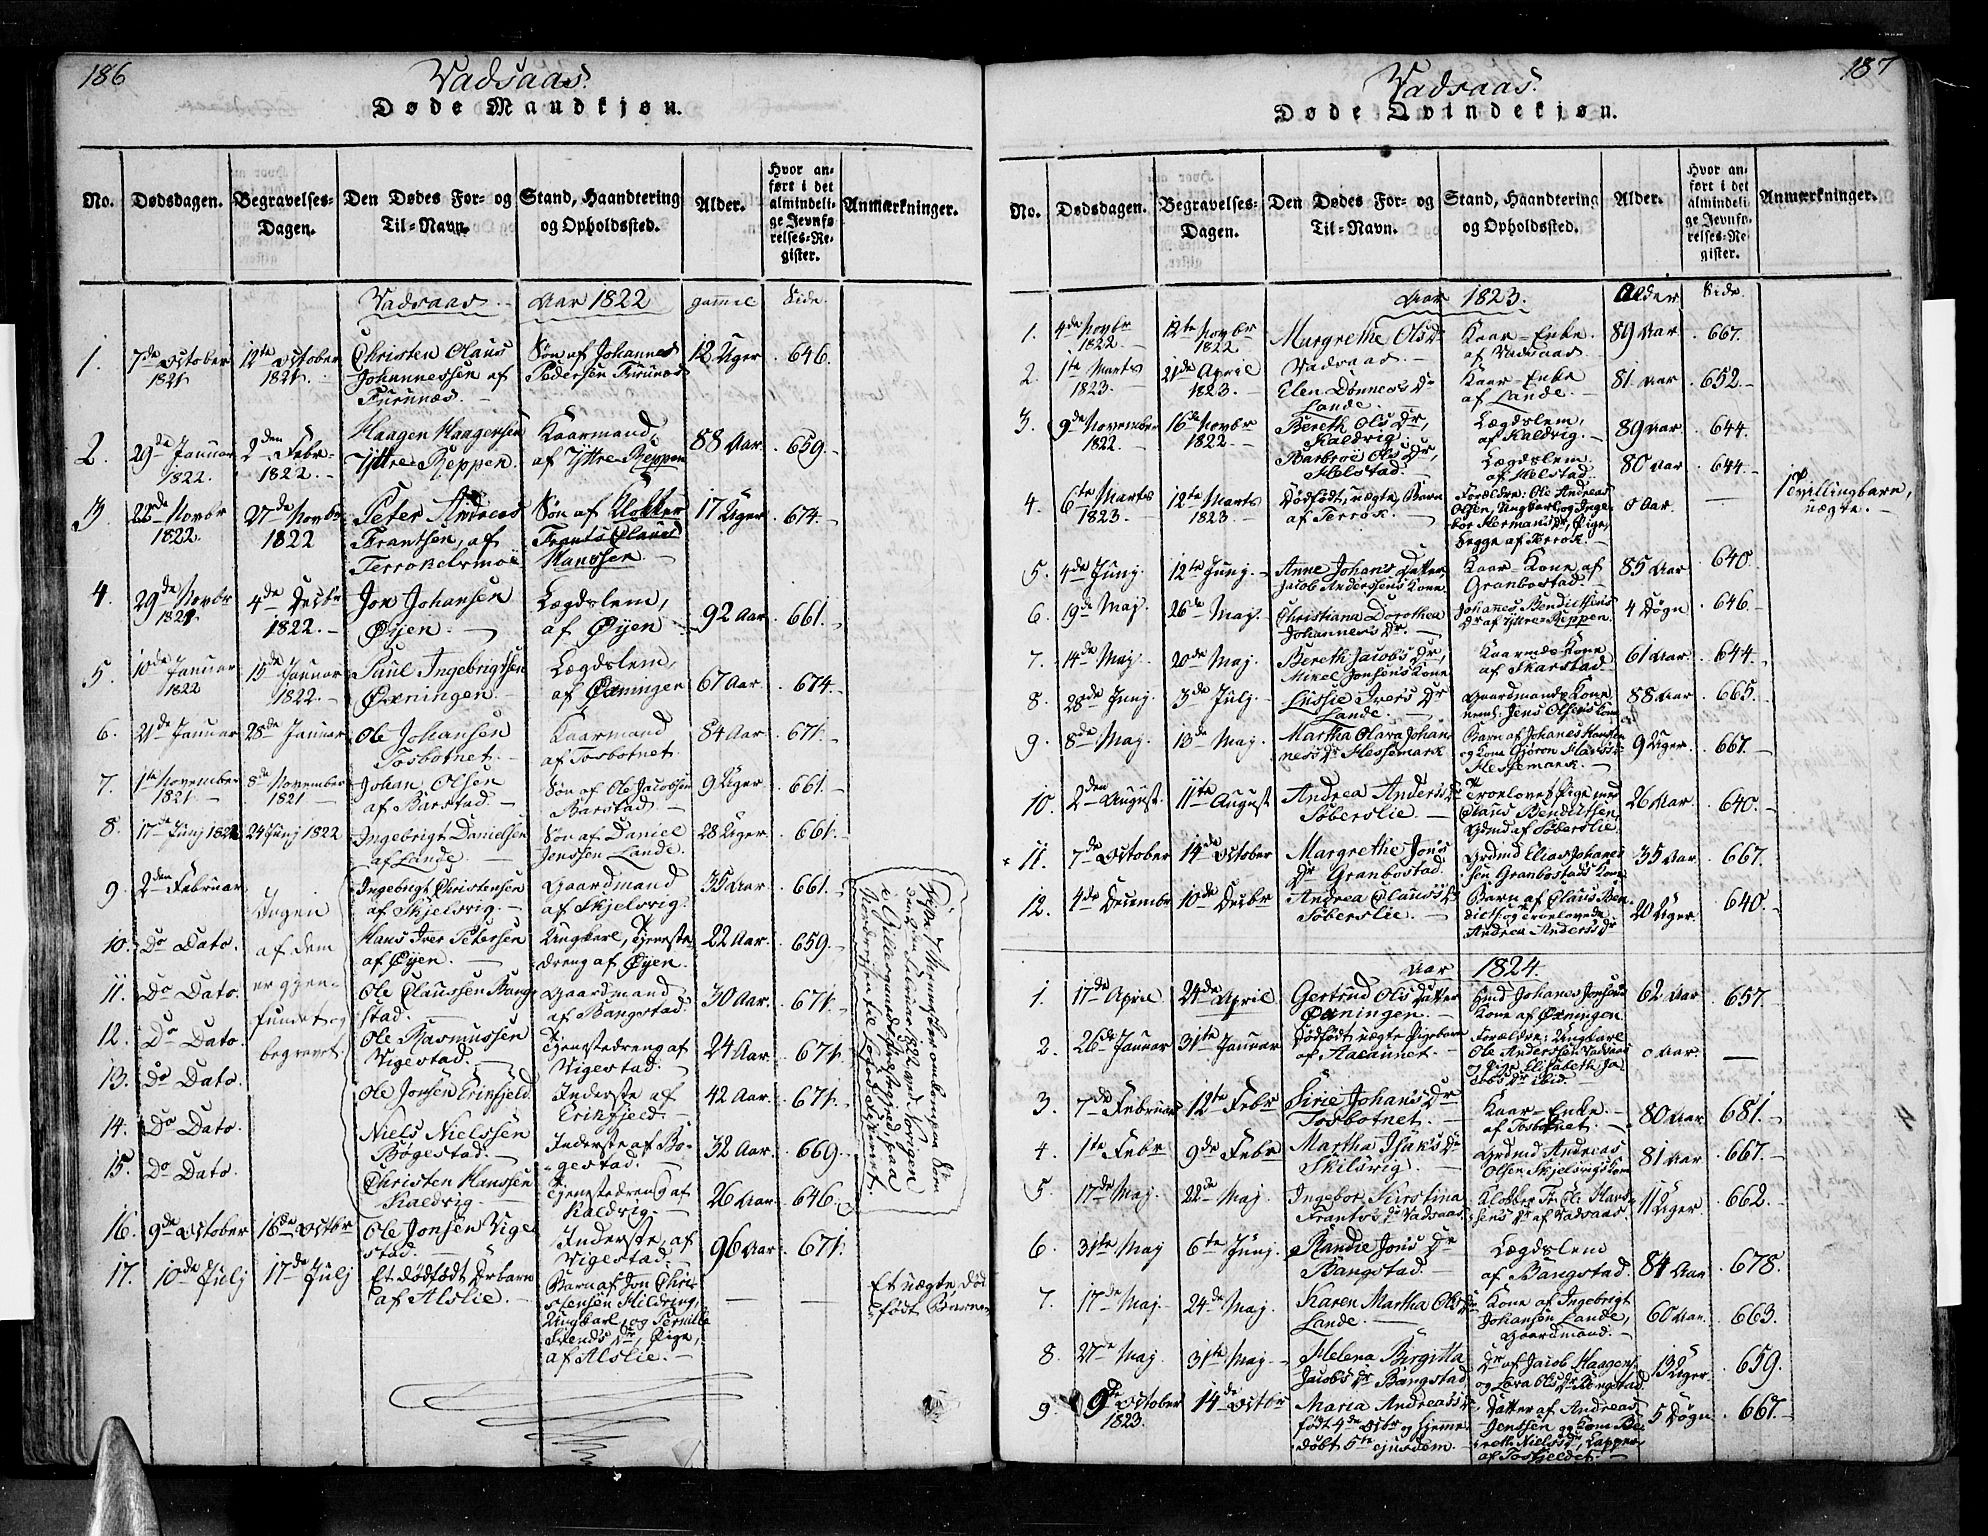 186
Vadsaas.
Døde Mandkjøn.
No.
Dødsdagen.
Begravelses-
Dagen.
Den Dødes For- og
Til-Navn.
Stand, Haandtering
og Opholdssted.
Alder.
Hvor an-
ført i det
almindeli-
ge Jevnfø-
relses-Re-
gister.
Anmærkninger.
Vadsaas. Aar 1822 gammel Side.
1. 7de October 1821 12te October 1821. Christen Olaus Johannessen af Furunæs. Søn af Johannes Pedersen Furunæs 12 Uger 646.
2. 29de Januar 1822. 2den Febr 1822. Haagen Haagensen Yttre Reppen. Kaarmand af Yttre Reppen 88 Aar 659.
3. 22de Novbr 1822. 27de Novbr 1822 Peter Andreas Frantsen, af Terrokelvmoe Søn af Klokker Frants Claus Hanssen 17 Uger 674.
4. 29de Novbr 4de Decbr 1822. Jon Johansen Øyen. Lægdslem, af Øyen 92 Aar 661.
5. 10de Januar 1822 15de Januar 1822. Paul Ingebrigtsen Øxningen. Lægdslem, af Øxningen 67 Aar 674.
6. 21de Januar 28de Januar Ole Johansen Tosbotnet. Kaarmand af Tosbotnet 84 Aar 671.
7. 1te November 1821. 8de November 1821 Johan Olsen af Barstad. Søn af Ole Jacobsen Barstad. 9 Uger 661.
8. 17de Junj 1822 24 Junj 1822 Ingebrigt Danielsen af Lande. Søn af Daniel Jenssen Lande. 28 Uger 661.
9. 2den Februar Ingebrigt Christensen af Skjelsvig. Gaardmand af Skjelsvig. 35 Aar 661.
Ingen
af dem
er gjen-
fundet og
begravet.
10. Do Dato. Hans Iver Petersen af Øyen. Ungkarl, Tjeneste-
dreng af Øyen. 22 Aar. 659.
11. Do Dato. Ole Claussen Bang-
stad. Gaardmand af Bangstad. 30 Aar. 671.
12. Do Dato. Ole Rasmussen Vigestad. Tjenestedreng af Vigestad. 24 Aar 671.
13. Do Dato. Ole Jonsen Erikfjeld. Inderste af Erikfjeld. 42 Aar 671.
14. Do Dato. Niels Nielssen Bøgestad. Inderste af Bø-
gestad. 32 Aar 669.
15. Do Dato. Christen Hanssen Kaldvig. Tjenestedreng af Kaldvig. 26 Aar 646.
Disse 7 Mennisker omkom paa
Februar 1822 ved
Nordreisen til Lofod-Fiskeriet.
16. 9de October 16de Octbr Ole Jonsen Vige-
stad. Inderste, af Vigestad. 96 Aar 671.
17. 10de Julj 17de Julj Et dødfødt Drbarn af Alslie. Barn af Jon Chri-
stensen Hildring, Ungkarl, og Pernille Svends Dr, Pige, af Alslie. Et uægte, død-
født Barn.
187
Vadsaas.
Døde Qvindekjøn.
No.
Dødsdagen.
Begravelses-
Dagen.
Den Dødes For- og
Til-Navn.
Stand, Haandtering
og Opholdssted.
Alder.
Hvor an-
ført i det
almindeli-
ge Jevnfø-
relses-Re-
gister.
Anmærkninger.
Aar 1823. Alder Side.
1. 4de Novbr 1822. 12te Novbr 1822 Margrethe Ols Dr Vadsaas. Kaar-Enke af Vadsaas. 89 Aar 667.
2. 1te Marts 1823. 21de April 1823. Elen Dønnes Dr Lande. Kaar-Enke af Lande. 81 Aar 652.
3. 9de November 1822. 16de Novbr 1822. Bereth Ols Dr, Kaldvig. Lægdslem, af Kaldvig. 89 Aar 644.
Barbroe Ols Dr, Helstad. Lægdslem af Helstad. 80 Aar 644.
4. 6te Marts 1823. 12te Marts 1823. Dødfødt, uægte, Barn af Terrok. Forældre: Ole Andreas Olsen, Ungkarl, og Inge-
bor Hermans Dr, Pige, begge af Terrok. 0 Aar. Tvillingbarn, uægte.
5. 4de Junj 12te Junj Anne Johans Datter, Jacob Anderssens Kone Kaar-Kone af Granbostad. 85 Aar 640.
6. 19de Maj. 26de Maj. Christiana Dorothea Johannes Dr. Johannes Bendictsens Dr af Yttre Reppen. 4 Døgn 646.
7. 14de Maj. 20de Maj. Bereth Jacobs Dr, Mikel Jonsens Kone Kaarmds Kone af Skarstad. 61 Aar 644.
8. 28de Junj 3de Julj Lussie Ivers Dr Lande. Gaardmands Kone Jens Olsens Kone 88 Aar 665.
9. 8de Maj. 13de Maj. Martha Olava Johan-
nes Dr Hessemark Barn af Johanes Hansen og Kone Hessemark. 9 Uger 667.
10. 2den August. 11te August Andrea Anders Dr Søberslie. Troelovet Pige med Claus Bendictsen, Grdmd af Søberslie. 26 Aar 640.
11. 7de October 14de October Margrethe Jons Dr Granbostad. Grdmd Elias Johanes-
sen Granbostads Kone 35 Aar 667.
12. 4de December 10de Decbr Andrea Claus Dr Søberslie. Barn af Claus Ben-
dicts. og troelovede Andrea Anders Dr 20 Uger 640.
Aar 1824.
1. 17de April 24de April Gertrud Ols Datter Øxningen. Grdmd Johanes Jonsens Kone af Øxningen. 62 Aar 657.
2. 26de Januar 31te Januar Dødfødt uægte Pigebarn af Aakaunet. Forældre: Ungkarl Ole Andersen Vadsaas og Pige Elisabeth Ja-
cobs Dr ibid. 0 Aar.
3. 7de Februar 12te Febr Sirie Johans Dr Tosbotnet Kaar-Enke af Tosbotnet. 80 Aar 681.
4. 1te Febr 9de Febr Martha Isaks Dr Skilsvig. Grdmd Andreas Olsen Skjelsvigs Kone 81 Aar 667.
5. 17de Maj. 22de Maj. Ingebor Kirstina Frants Dr Vadsaas. Klokker Fr. Cl. Hans-
sens Dr af Vadsaas. 11 Uger 662.
6. 31te Maj 6te Junj. Randie Jons Dr Bangstad. Lægdslem af Bangstad. 84 Aar 678.
7. 17de Maj. 24de Maj. Karen Martha Ols Dr Lande. Kone af Ingebrigt Johansen Lande, Gaardmand. 60 Aar. 663.
8. 27de Maj. 31te Maj Helena Birgitta Jacobs Dr Bangstad Dr af Jacob Haagens. og Lava Ols Dr Bangstad. 13 Uger. 659.
9. 9de October 1823. 14de Octbr Maria Andreas Dr født 4de Octbr og hjemme-
døbt 5te ejusdem. Datter af Andreas Jenssen og Kone Be-
reth Niels Dr, Lapper, af Tosfjeldet. 5 Døgn 667.